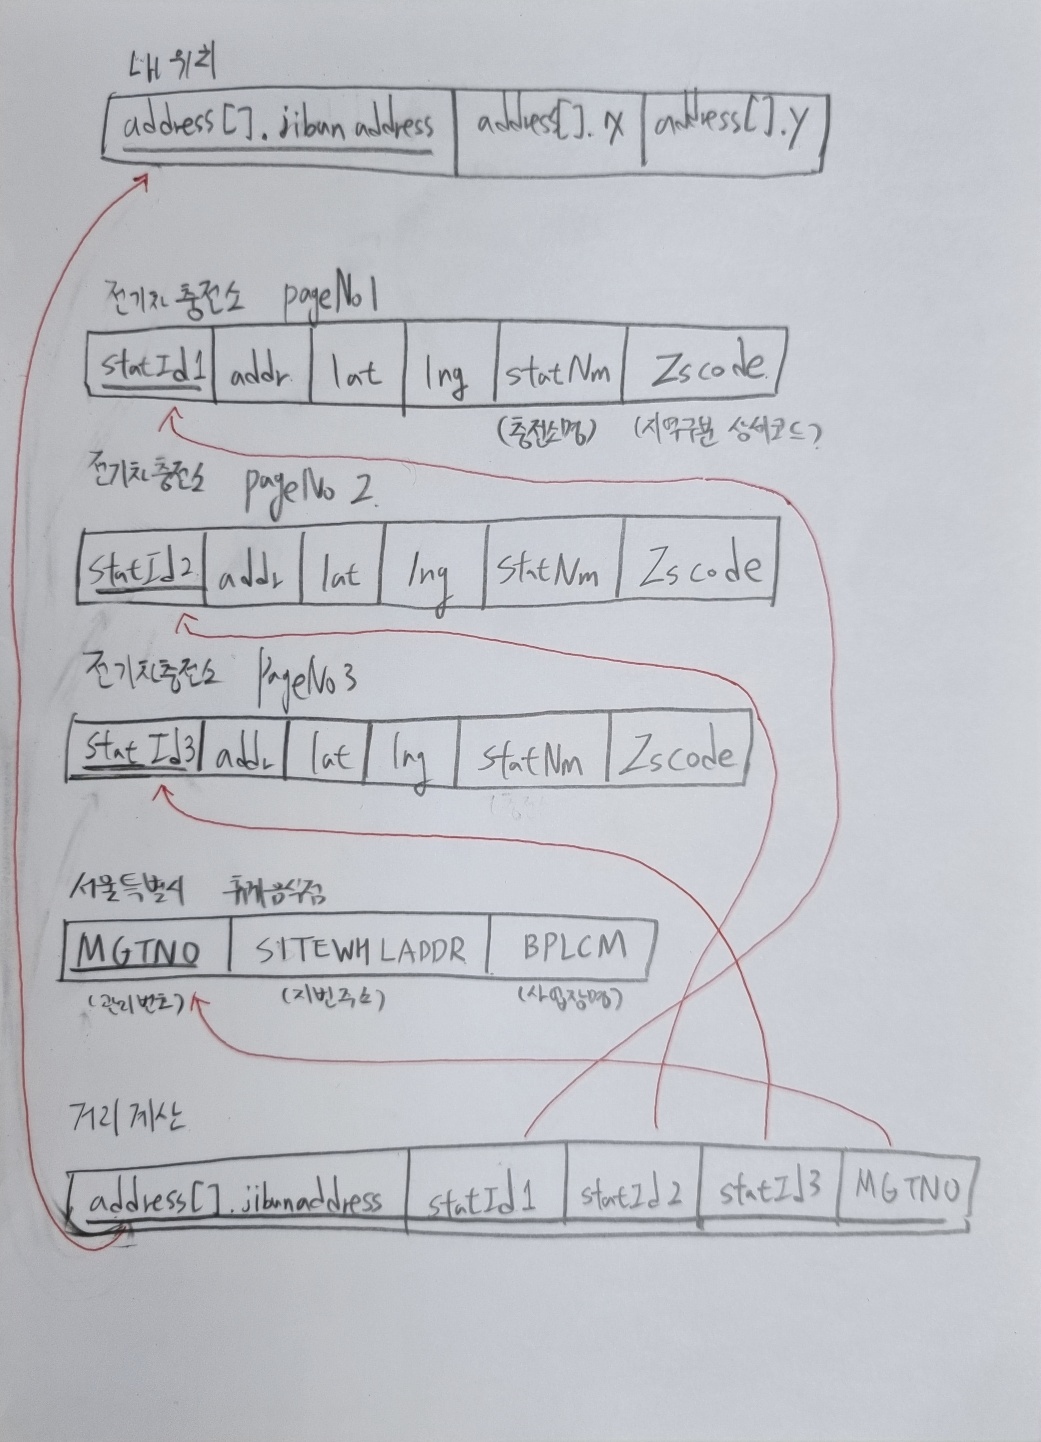 내 위치
address[].jibun address address[].x address[].y
전기차 충전소 pageNo1
statId1 addr lat lng statNm Zscode
(충전소명) (지역구분 상세코드)
전기차충전소 pageNo 2.
statId2 addr lat lng statNm Zscode
전기차충전소 PageNo3
statId3 addr lat lng statNm Zscode
서울특별시 휴게음식점
MGTNO SITEWHLADDR BPLCM
(관리번호) (지번주소) (사업장명)
거리 계산
address[].jibunaddress statId1 statId2 statId3 MGTNO